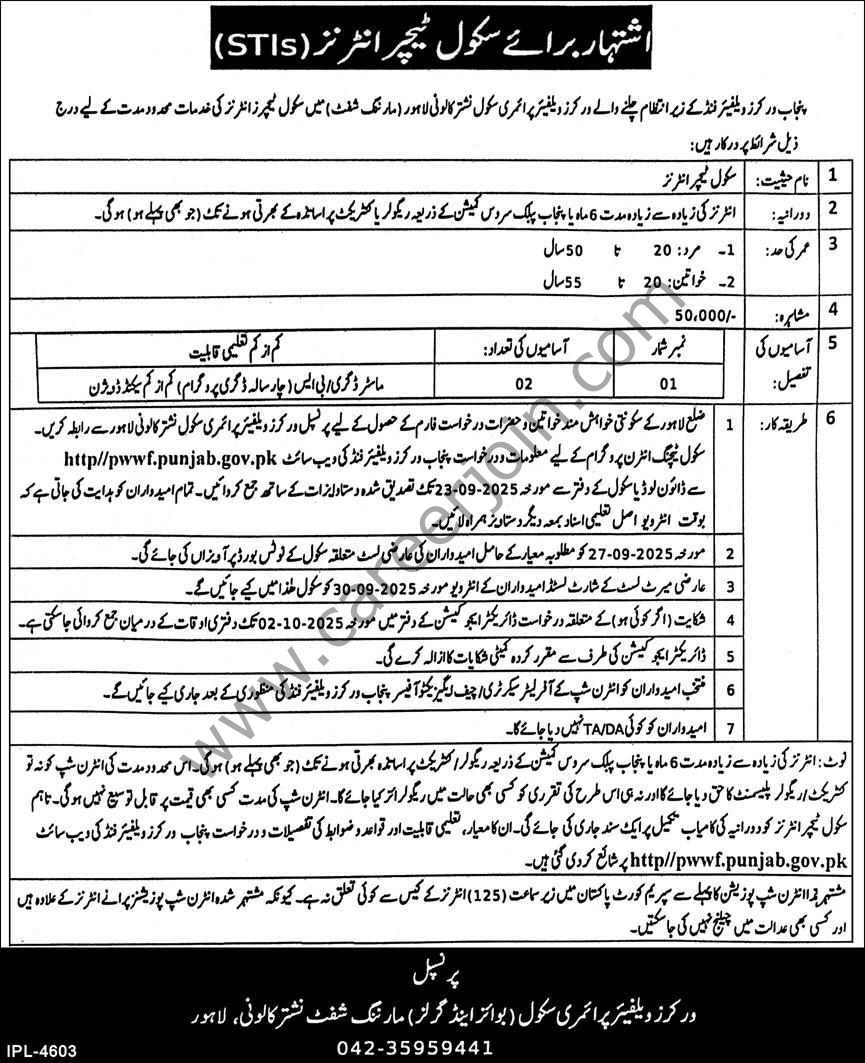 اشتہار برائے سکول ٹیچر انٹرنز (STIs)
پنجاب ورکرز ویلفیئر فنڈ کے زیر انتظام چلنے والے ورکرز ویلفیئر پرائمری سکول نشتر کالونی لاہور (مارننگ شفٹ) میں سکول ٹیچرز انٹرنز کی خدمات محدود مدت کے لیے درج
ذیل شرائط پر درکار ہیں:
1 نام حیثیت: سکول ٹیچر انٹرنز
2 دورانیہ: انٹرنز کی زیادہ سے زیادہ مدت 6 ماہ یا پنجاب پبلک سروس کمیشن کے ذریعہ ریگولر یا کنٹریکٹ پر اساتذہ کے بھرتی ہونے تک (جو بھی پہلے ہو) ہوگی۔
3 عمر کی حد: 1۔ مرد: 20 تا 50 سال
2۔ خواتین: 20 تا 55 سال
4 مشاہرہ: 50,000/-
5 آسامیوں کی تفصیل: نمبر شمار آسامیوں کی تعداد: کم از کم تعلیمی قابلیت
01 02 ماسٹر ڈگری/بی ایس (چار سالہ ڈگری پروگرام) کم از کم سیکنڈ ڈویژن
6 طریقہ کار: 1 ضلع لاہور کے سکونتی خواہش مند خواتین و حضرات درخواست فارم کے حصول کے لیے پرنسپل ورکرز ویلفیئر پرائمری سکول نشتر کالونی لاہور سے رابطہ کریں۔
سکول ٹیچنگ انٹرن پروگرام کے لیے معلومات و درخواست پنجاب ورکرز ویلفیئر فنڈ کی ویب سائٹ http//pwwf.punjab.gov.pk
سے ڈائون لوڈ یا سکول کے دفتر سے مورخہ 23-09-2025 تک تصدیق شدہ دستاویزات کے ساتھ جمع کروائیں۔ تمام امیدواران کو ہدایت کی جاتی ہے کہ
بوقت انٹرویو اصل تعلیمی اسناد بمعہ دیگر دستاویز ہمراہ لائیں۔
2 مورخہ 27-09-2025 کو مطلوبہ معیار کے حامل امیدواران کی عارضی لسٹ متعلقہ سکول کے نوٹس بورڈ پر آویزاں کی جائے گی۔
3 عارضی میرٹ لسٹ کے شارٹ لسٹڈ امیدواران کے انٹرویو مورخہ 30-09-2025 کو سکول ھٰذا میں کیے جائیں گے۔
4 شکایت (اگر کوئی ہو) کے متعلقہ درخواست ڈائریکٹر ایجوکیشن کے دفتر میں مورخہ 02-10-2025 تک دفتری اوقات کے درمیان جمع کروائی جاسکتی ہے۔
5 ڈائریکٹر ایجوکیشن کی طرف سے مقرر کردہ کمیٹی شکایات کا ازالہ کرے گی۔
6 منتخب امیدواران کو انٹرن شپ کے آفر لیٹر سیکرٹری/چیف ایگزیکٹو آفیسر پنجاب ورکرز ویلفیئر فنڈ کی منظوری کے بعد جاری کیے جائیں گے۔
7 امیدواران کو کوئی TA/DA نہیں دیا جائے گا۔
نوٹ: انٹرنز کی زیادہ سے زیادہ مدت 6 ماہ یا پنجاب پبلک سروس کمیشن کے ذریعہ ریگولر/کنٹریکٹ پر اساتذہ بھرتی ہونے تک (جو بھی پہلے ہو) ہوگی۔ اس محدود مدت کی انٹرن شپ کو نہ تو
کنٹریکٹ/ریگولر پلیسمنٹ کا حق دیا جائے گا اور نہ ہی اس طرح کی تقرری کو کسی بھی حالت میں ریگولرائز کیا جائے گا۔ انٹرن شپ کی مدت کسی بھی قیمت پر قابل توسیع نہیں ہوگی۔ تاہم
سکول ٹیچر انٹرنز کو دورانیہ کی کامیاب تکمیل پر ایک سند جاری کی جائے گی۔ ان کا معیار، تعلیمی قابلیت اور قواعد و ضوابط کی تفصیلات و درخواست پنجاب ورکرز ویلفیئر فنڈ کی ویب سائٹ
http//pwwf.punjab.gov.pk پر شائع کر دی گئی ہیں۔
مشتہر ہذا انٹرن شپ پوزیشن کا پہلے سے سپریم کورٹ پاکستان میں زیر سماعت (125) انٹرنز کے کیس سے کوئی تعلق نہ ہے۔ کیونکہ مشتہر شدہ انٹرن شپ پوزیشنز پرانے انٹرنز کے علاوہ ہیں
اور کسی بھی عدالت میں چیلنج نہیں کی جاسکتیں۔
پرنسپل
ورکرز ویلفیئر پرائمری سکول (بوائز اینڈ گرلز) مارننگ شفٹ نشتر کالونی، لاہور
042-35959441
IPL-4603
www.careerjoin.com